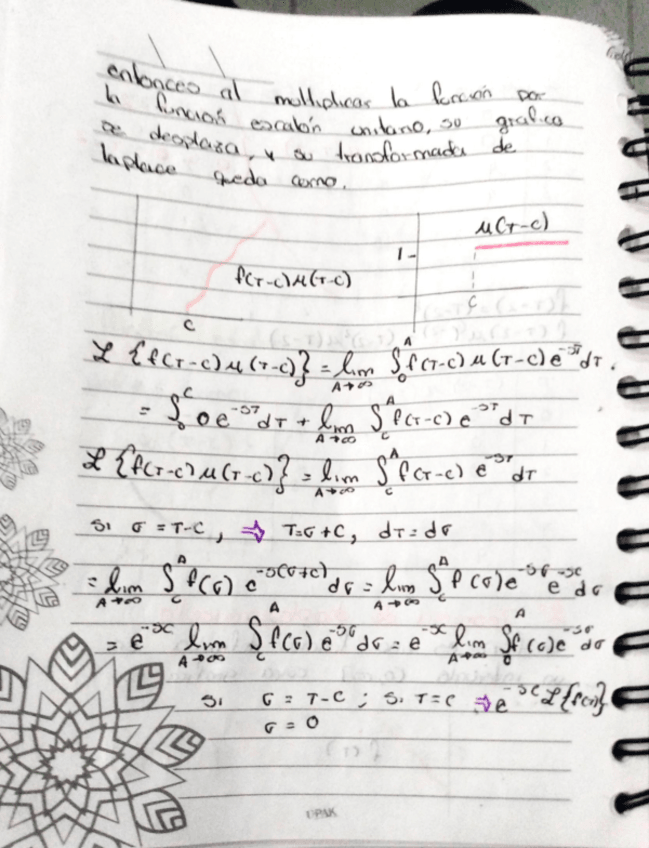 entonces al multiplicar la función por
la función escalón unitario, su grafica
se desplaza, y su transformada de
laplace queda como.
μ(τ-c)
1-
f(τ-c)μ(τ-c)
c
c
ℒ {f(τ-c)μ(τ-c)} = lim A→∞ ∫₀^A f(τ-c) μ(τ-c) e^-sτ dτ.
= ∫₀^c 0 e^-sτ dτ + lim A→∞ ∫_c^A f(τ-c) e^-sτ dτ
ℒ {f(τ-c)μ(τ-c)} = lim A→∞ ∫_c^A f(τ-c) e^-sτ dτ
si σ = τ-c, ⇒ τ=σ+c, dτ=dσ
= lim A→∞ ∫_c^A f(σ) e^-s(σ+c) dσ = lim A→∞ ∫_c^A f(σ) e^-sσ e^-sc dσ
= e^-sc lim A→∞ ∫_c^A f(σ) e^-sσ dσ = e^-sc lim A→∞ ∫₀^A f(σ) e^-sσ dσ
si σ = τ-c ; si τ=c ⇒ e^-sc ℒ{f(τ)}
σ = 0